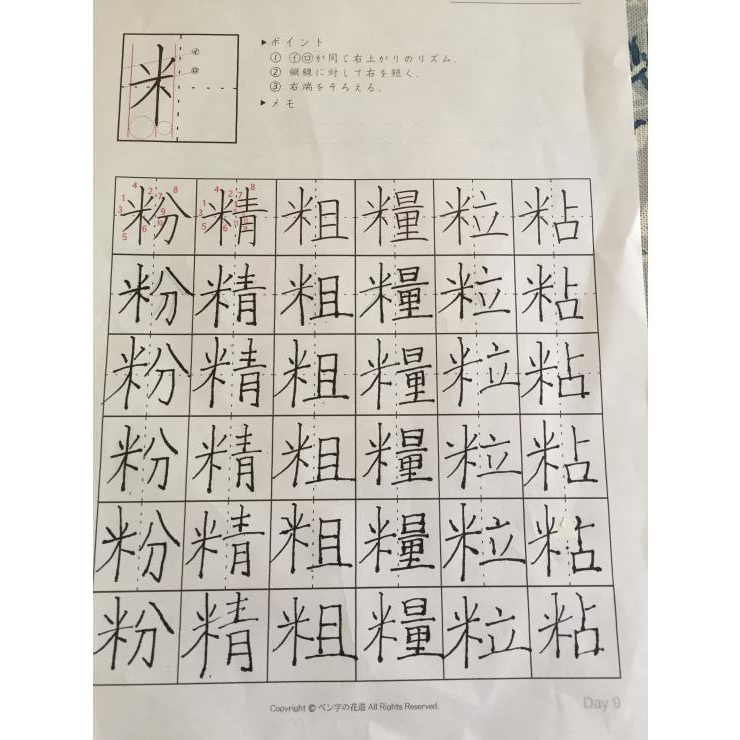 米
イ
ロ
▶ポイント
① ㋑㋺が同じ右上がりのリズム.
② 縦線に対して右を短く.
③ 右端をそろえる.
▶メモ
粉 精 粗 糧 粒 粘
粉 精 粗 糧 粒 粘
粉 精 粗 糧 粒 粘
粉 精 粗 糧 粒 粘
粉 精 粗 糧 粒 粘
粉 精 粗 糧 粒 粘
Copyright © ペン字の花道 All Rights Reserved.
Day 9